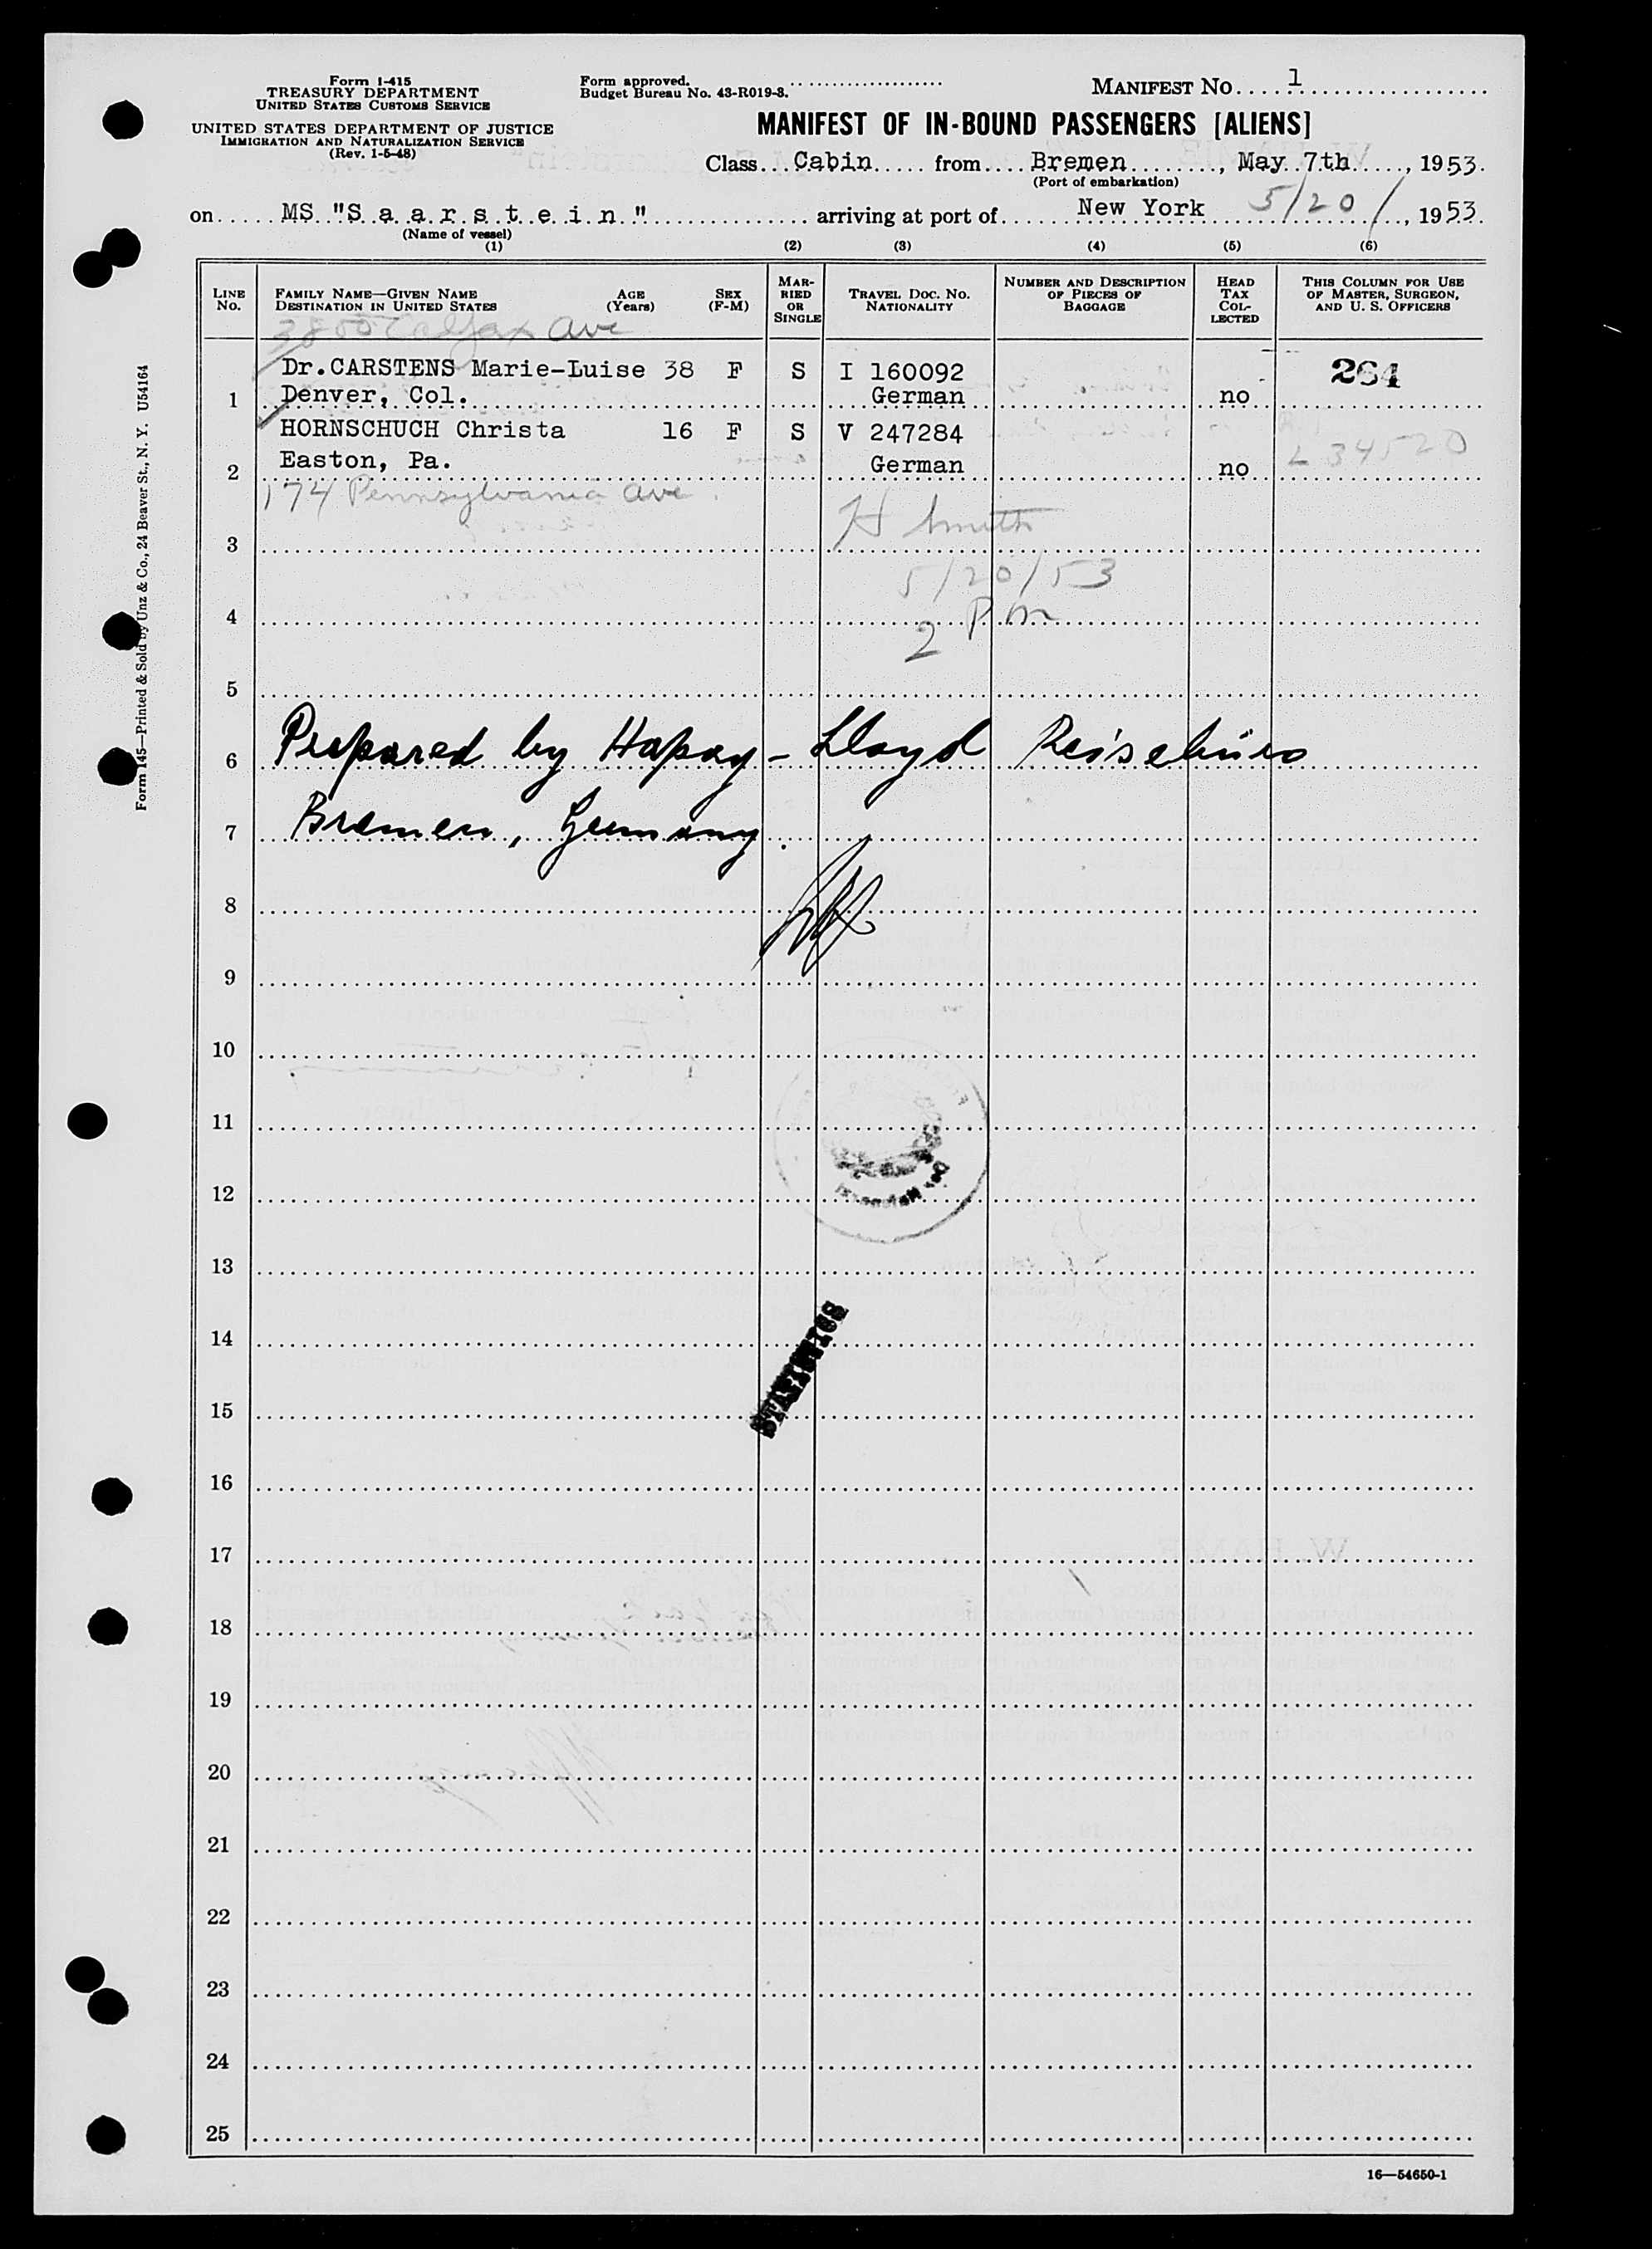 Form I-415
TREASURY DEPARTMENT
UNITED STATES CUSTOMS SERVICE
UNITED STATES DEPARTMENT OF JUSTICE
IMMIGRATION AND NATURALIZATION SERVICE
(Rev. 1-5-48)
Form approved.
Budget Bureau No. 43-R019-3.
MANIFEST NO. 1
MANIFEST OF IN-BOUND PASSENGERS [ALIENS]
Class Cabin from Bremen, May 7th, 1953.
(Port of embarkation)
on MS "Saarstein" arriving at port of New York 5/20/, 1953.
(Name of vessel)
(1) (2) (3) (4) (5) (6)
LINE NO. FAMILY NAME—GIVEN NAME DESTINATION IN UNITED STATES AGE (Years) SEX (F-M) MARRIED OR SINGLE TRAVEL DOC. NO. NATIONALITY NUMBER AND DESCRIPTION OF PIECES OF BAGGAGE HEAD TAX COLLECTED THIS COLUMN FOR USE OF MASTER, SURGEON, AND U. S. OFFICERS
Colfax Ave
Dr. CARSTENS Marie-Luise 38 F S I 160092 264
1 Denver, Col. German no
HORNSCHUCH Christa 16 F S V 247284
2 Easton, Pa. German no L 34520
174 Pennsylvania Ave.
H Smith
3
5/20/53
4 2 PM
5
6 Prepared by Hapag-Lloyd Reisebüro
7 Bremen, Germany.
8
9
10
11
12
13
14
STATISTICS
15
16
17
18
19
20
21
22
23
24
25
16—54650-1
Form 145—Printed & Sold by Unz & Co., 24 Beaver St., N. Y. U54164